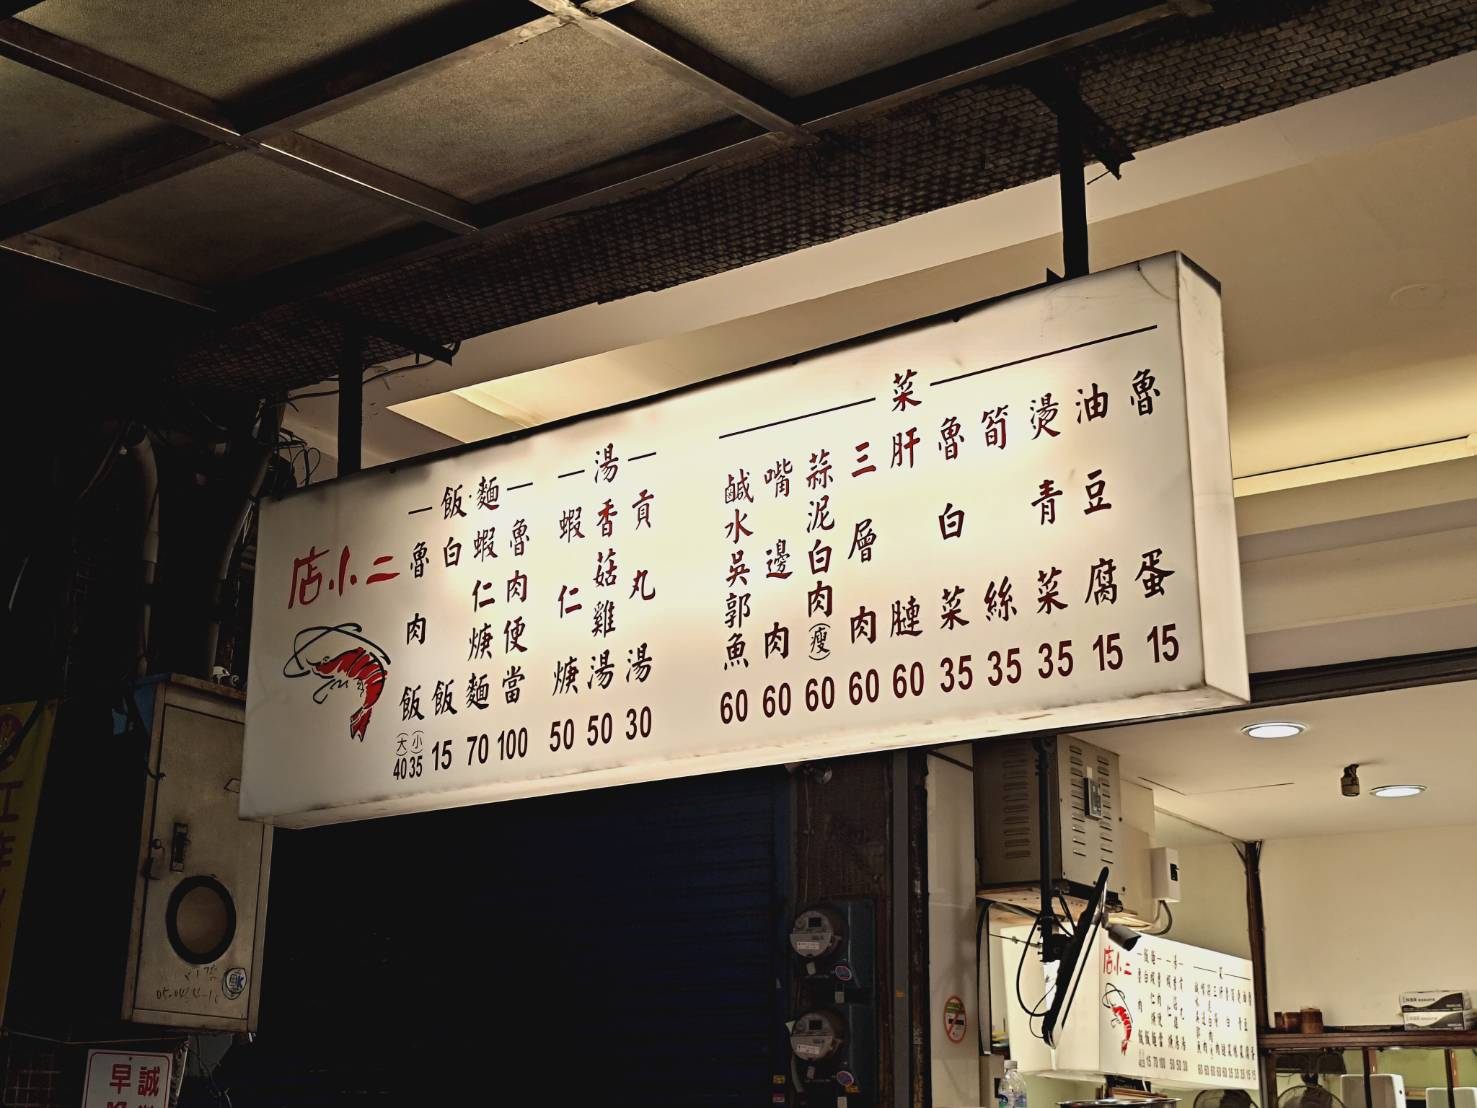 店小二
飯·麵
魯肉飯 (大)40 (小)35
白飯 15
蝦仁焿麵 70
魯肉便當 100
湯
蝦仁焿 50
香菇雞湯 50
貢丸湯 30
菜
鹹水吳郭魚 60
嘴邊肉 60
蒜泥白肉(瘦) 60
三層肉 60
肝腱 60
魯白菜 35
筍絲 35
燙青菜 35
油豆腐 15
魯蛋 15
店小二
誠
早